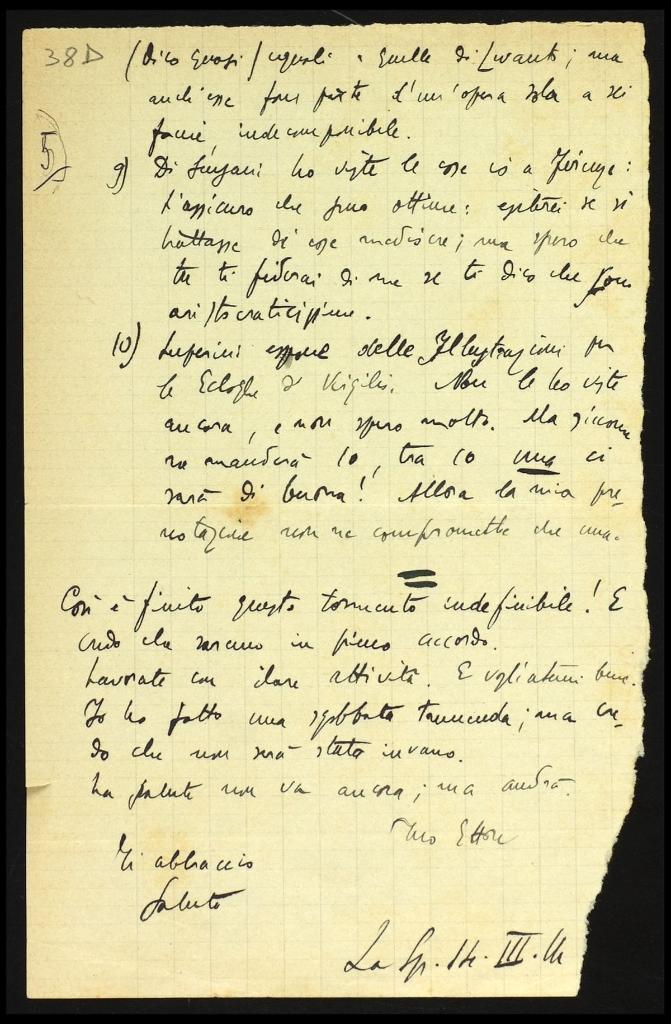 38D
(Dico quasi) uguali a quelle di Levanti; ma
anch'esse fanno parte d'un'opera sola a sei
facce, indecomponibile.
5
9) Di ho viste le cose io a Firenze:
t'assicuro che sono ottime: esiterei se si
trattasse di cose mediocri; ma spero che
tu ti fiderai di me se ti dico che sono
aristocraticissime.
10) espone delle Illustrazioni per
le Ecloghe di Virgilio. Non le ho viste
ancora, e non spero molto. Ma siccome
ne manderà 10, tra 10 una ci
sarà di buona! Allora la mia pre-
notazione non ne comprometta che una.
Così è finito questo tormento indefinibile! E
credo che saremo in pieno accordo.
Lavorate con ilare attività. E vogliatemi bene.
Io ho fatto una sgobbata tremenda; ma cre-
do che non sarà stata invano.
La salute non va ancora; ma andrà.
Tuo Ettore
Ti abbraccio
Saluto
La Sp. 14. III.